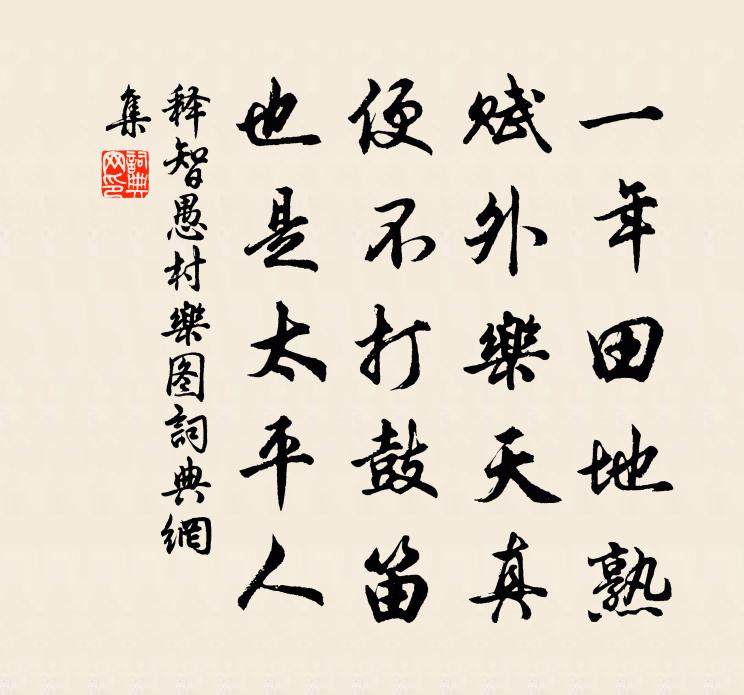 一年田地熟
赋外樂天真
便不打鼓笛
也是太平人
释智愚村樂图詞典網
集
詞典网印